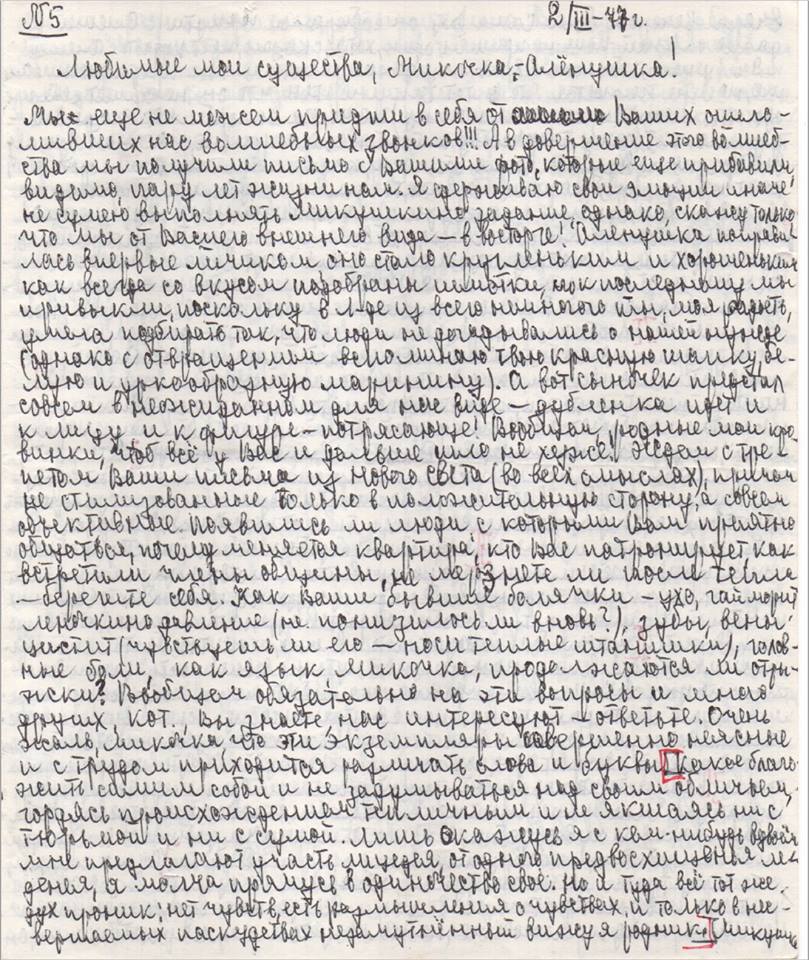 N5
2/III-77 г.
Любимые мои существа, Микочка, Алёнушка!
Мы еще не можем придти в себя от Ваших ошело-
мивших нас волшебных звонков!!! А в довершение этого волшеб-
ства мы получили письмо с Вашими фото, которые еще прибавили,
видимо, пару лет жизни нам. Я сдерживаю свои эмоции иначе
не сумею выполнять Микушкино задание, однако, скажу только
что мы от Вашего внешнего вида – в восторге! Аленушка поправи-
лась впервые личиком, оно стало кругленьким и хорошеньким
как всегда со вкусом подобраны шмотки, но к последнему мы
привыкли, поскольку в Л-де из всего немногого ты, моя радость,
умела подбирать так, что люди не догадывались о нашей нужде
(однако с отвращением вспоминаю твою красную шапку, бе-
лую и уркообразную маринину). А вот сыночек предстал
совсем в неожиданном для нас виде – дубленка идет и
к лицу и к фигуре – потрясающе! Вообщем, родные мои кро-
винки, чтоб всё у Вас и дальше шло не хуже! Ждем с тре-
петом Ваши письма из Нового света (во всех смыслах), причем
не стилизованные только в положительную сторону, а совсем
объективные. Появились ли люди, с которыми Вам приятно
общаться, почему меняется квартира, кто Вас патронирует, как
встретили члены общины, не мерзнете ли после тепла
– берегите себя. Как Ваши бывшие болячки – ухо, гайморит
леночкино давление (не понизилось ли вновь?), зубы, вены
цистит (чувствуешь ли его – носи теплые штанишки), голов-
ные боли, как язык Микочка, продолжаются ли отры-
жки? Вообщем обязательно на эти вопросы и много
других, кот., Вы знаете нас интересуют – ответьте. Очень
жаль, Микочка что эти экземпляры совершенно неясные
и с трудом приходится различать слова и буквы. [Какое благо
жить самим собой и не задумываться над своим обличьем,
гордясь происхождением тем личным и не якшаясь ни с
тюрьмой и ни с сумой. Лишь окажусь я с кем-нибудь вдвоём
мне предлагают участь лицедея, от одного предвосхищенья ле-
денея, я молча прячусь в одиночество своё. Но и туда всё тот же
дух проник: нет чувств, есть размышления о чувствах, и только в не-
вершаемых паскудствах незамутнённый вижу я родник.] (Микуши